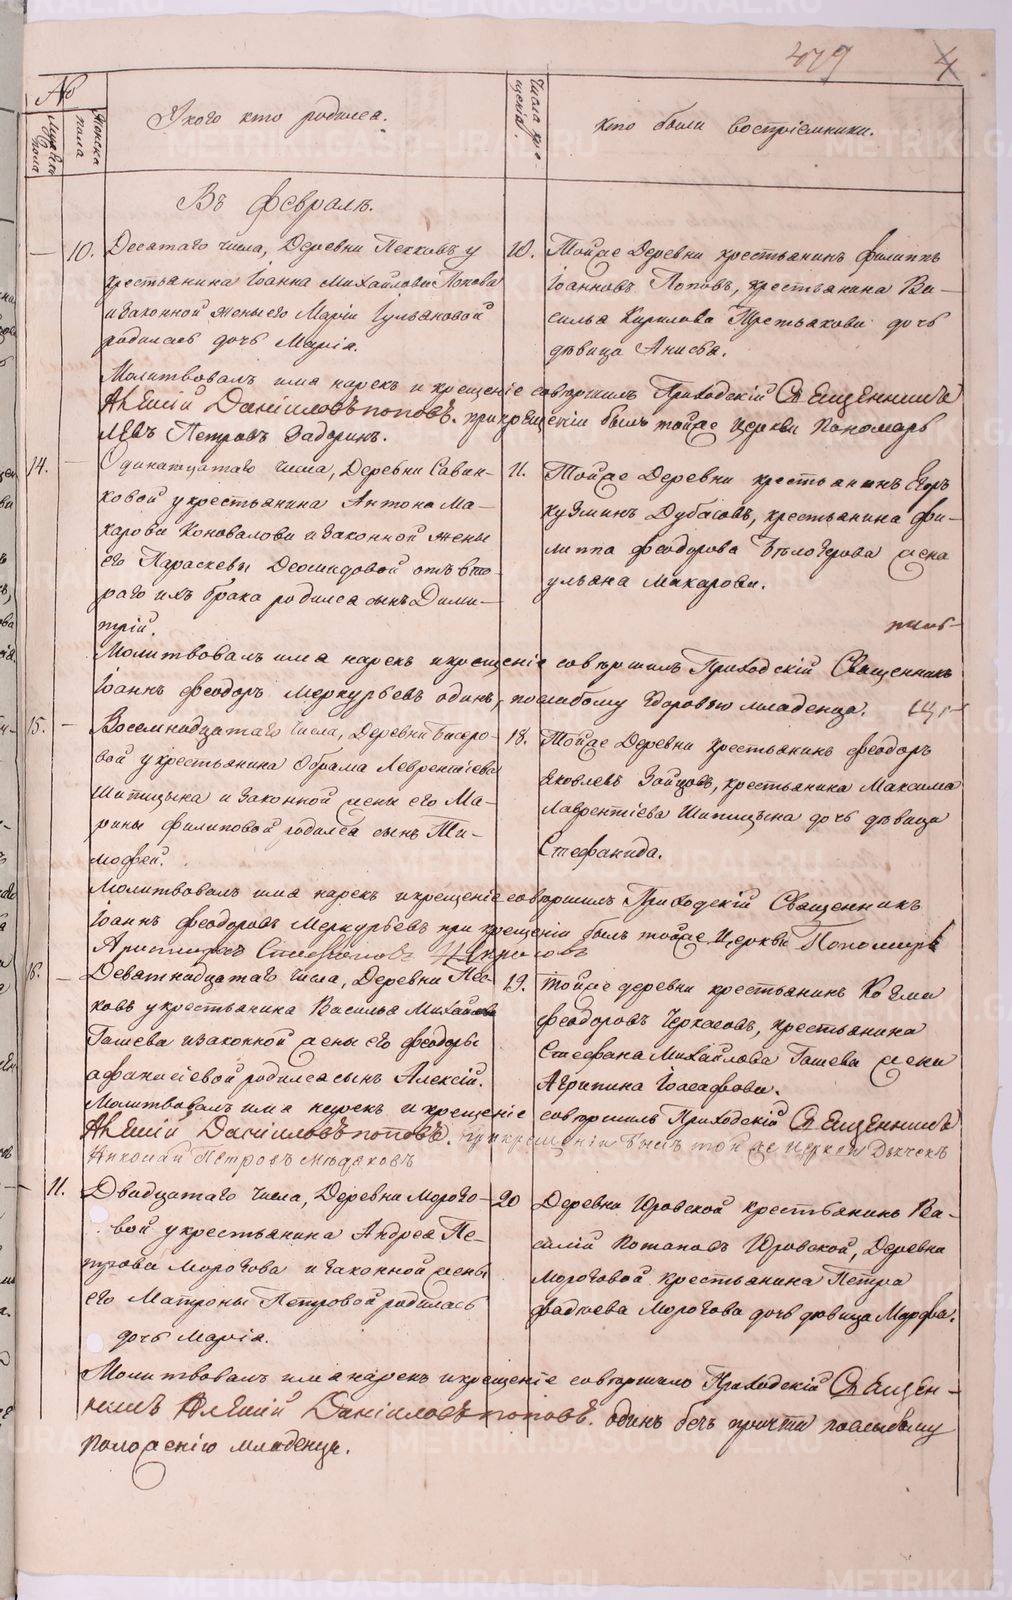 479
4
№
Мужеска пола
Женска пола
У кого кто родился.
Числа кре-
щенія.
Кто были воспріемники.
Въ февралѣ.
— 10. Десятаго числа, Деревни Песковъ у
крестьянина Іоанна Михайлова Попова
и законной жены его Маріи Іульяновой
родилась дочь Марія.
10. Тойже Деревни крестьянинъ филиппъ
Іоанновъ Поповъ, крестьянина Ва-
силья Кирилова Третьякова дочь
дѣвица Анисья.
Молитвовалъ имя нарекъ и крещеніе совершилъ Приходскій Священникъ
Алеѯій Даніиловъ поповъ. при крещеніи былъ тойже Церкви Пономарь
Левъ Петровъ Задоринъ.
14. — Одинатцатаго числа, Деревни Савин-
ковой у крестьянина Антона Ма-
карова Коновалова и законной жены
его Параскевы Деомидовой отъ вто-
раго ихъ брака родился сынъ Дими-
трій.
11. Тойже Деревни крестьянинъ Егоръ
Кузминъ Дубасовъ, крестьянина фи-
липпа феодорова Бѣлозерова жена
ульяна Макарова.
Молитвовалъ имя нарекъ и крещеніе совершилъ Приходскій Священникъ
Іоаннъ феодоръ Меркурьевъ одинъ, по слабому здоровью младенца.
15. — Восемнадцатаго числа, Деревни Бисеро-
вой у крестьянина Обрама Лаврентіева
Шипицына и законной жены его Ма-
рины филиповой родился сынъ Ти-
мофей.
18. Тойже Деревни крестьянинъ феодоръ
Яковлевъ Зайцовъ, крестьянина Максима
Лаврентіева Шипицына дочь дѣвица
Стефанида.
Молитвовалъ имя нарекъ и крещеніе совершилъ Приходскій Священникъ
Іоаннъ феодоровъ Меркурьевъ при крещеніи былъ тойже Церкви Пономарь
— Девятнадцатаго числа, Деревни Пес-
ковъ у крестьянина Василья Михайлова
Гашева и законной жены его феодоры
афанасіевой родился сынъ Алексій.
19. Тойже деревни крестьянинъ Козма
феодоровъ Черкасовъ, крестьянина
Стефана Михайлова Гашева жена
Агрипина Іоасафова.
Молитвовалъ имя нарекъ и крещеніе совершилъ Приходскій Священникъ
Алеѯій Даніиловъ поповъ. при крещеніи былъ тойже церкви Дьячекъ
Николай Петровъ
— 11. Двадцатаго числа, Деревни Морозо-
вой у крестьянина Андрея Пе-
трова Морозова и законной жены
его Матроны Петровой родилась
дочь Марія.
20 Деревни Юровской крестьянинъ Ва-
силій Потаповъ Юровской, Деревни
Морозовой крестьянина Петра
фадѣева Морозова дочь дѣвица Марфа.
Молитвовалъ имя нарекъ и крещеніе совершилъ Приходскій Священ-
никъ Алеѯій Даніиловъ поповъ. одинъ безъ причта по слабому
положенію младенца.
METRIKI.GASO-URAL.RU